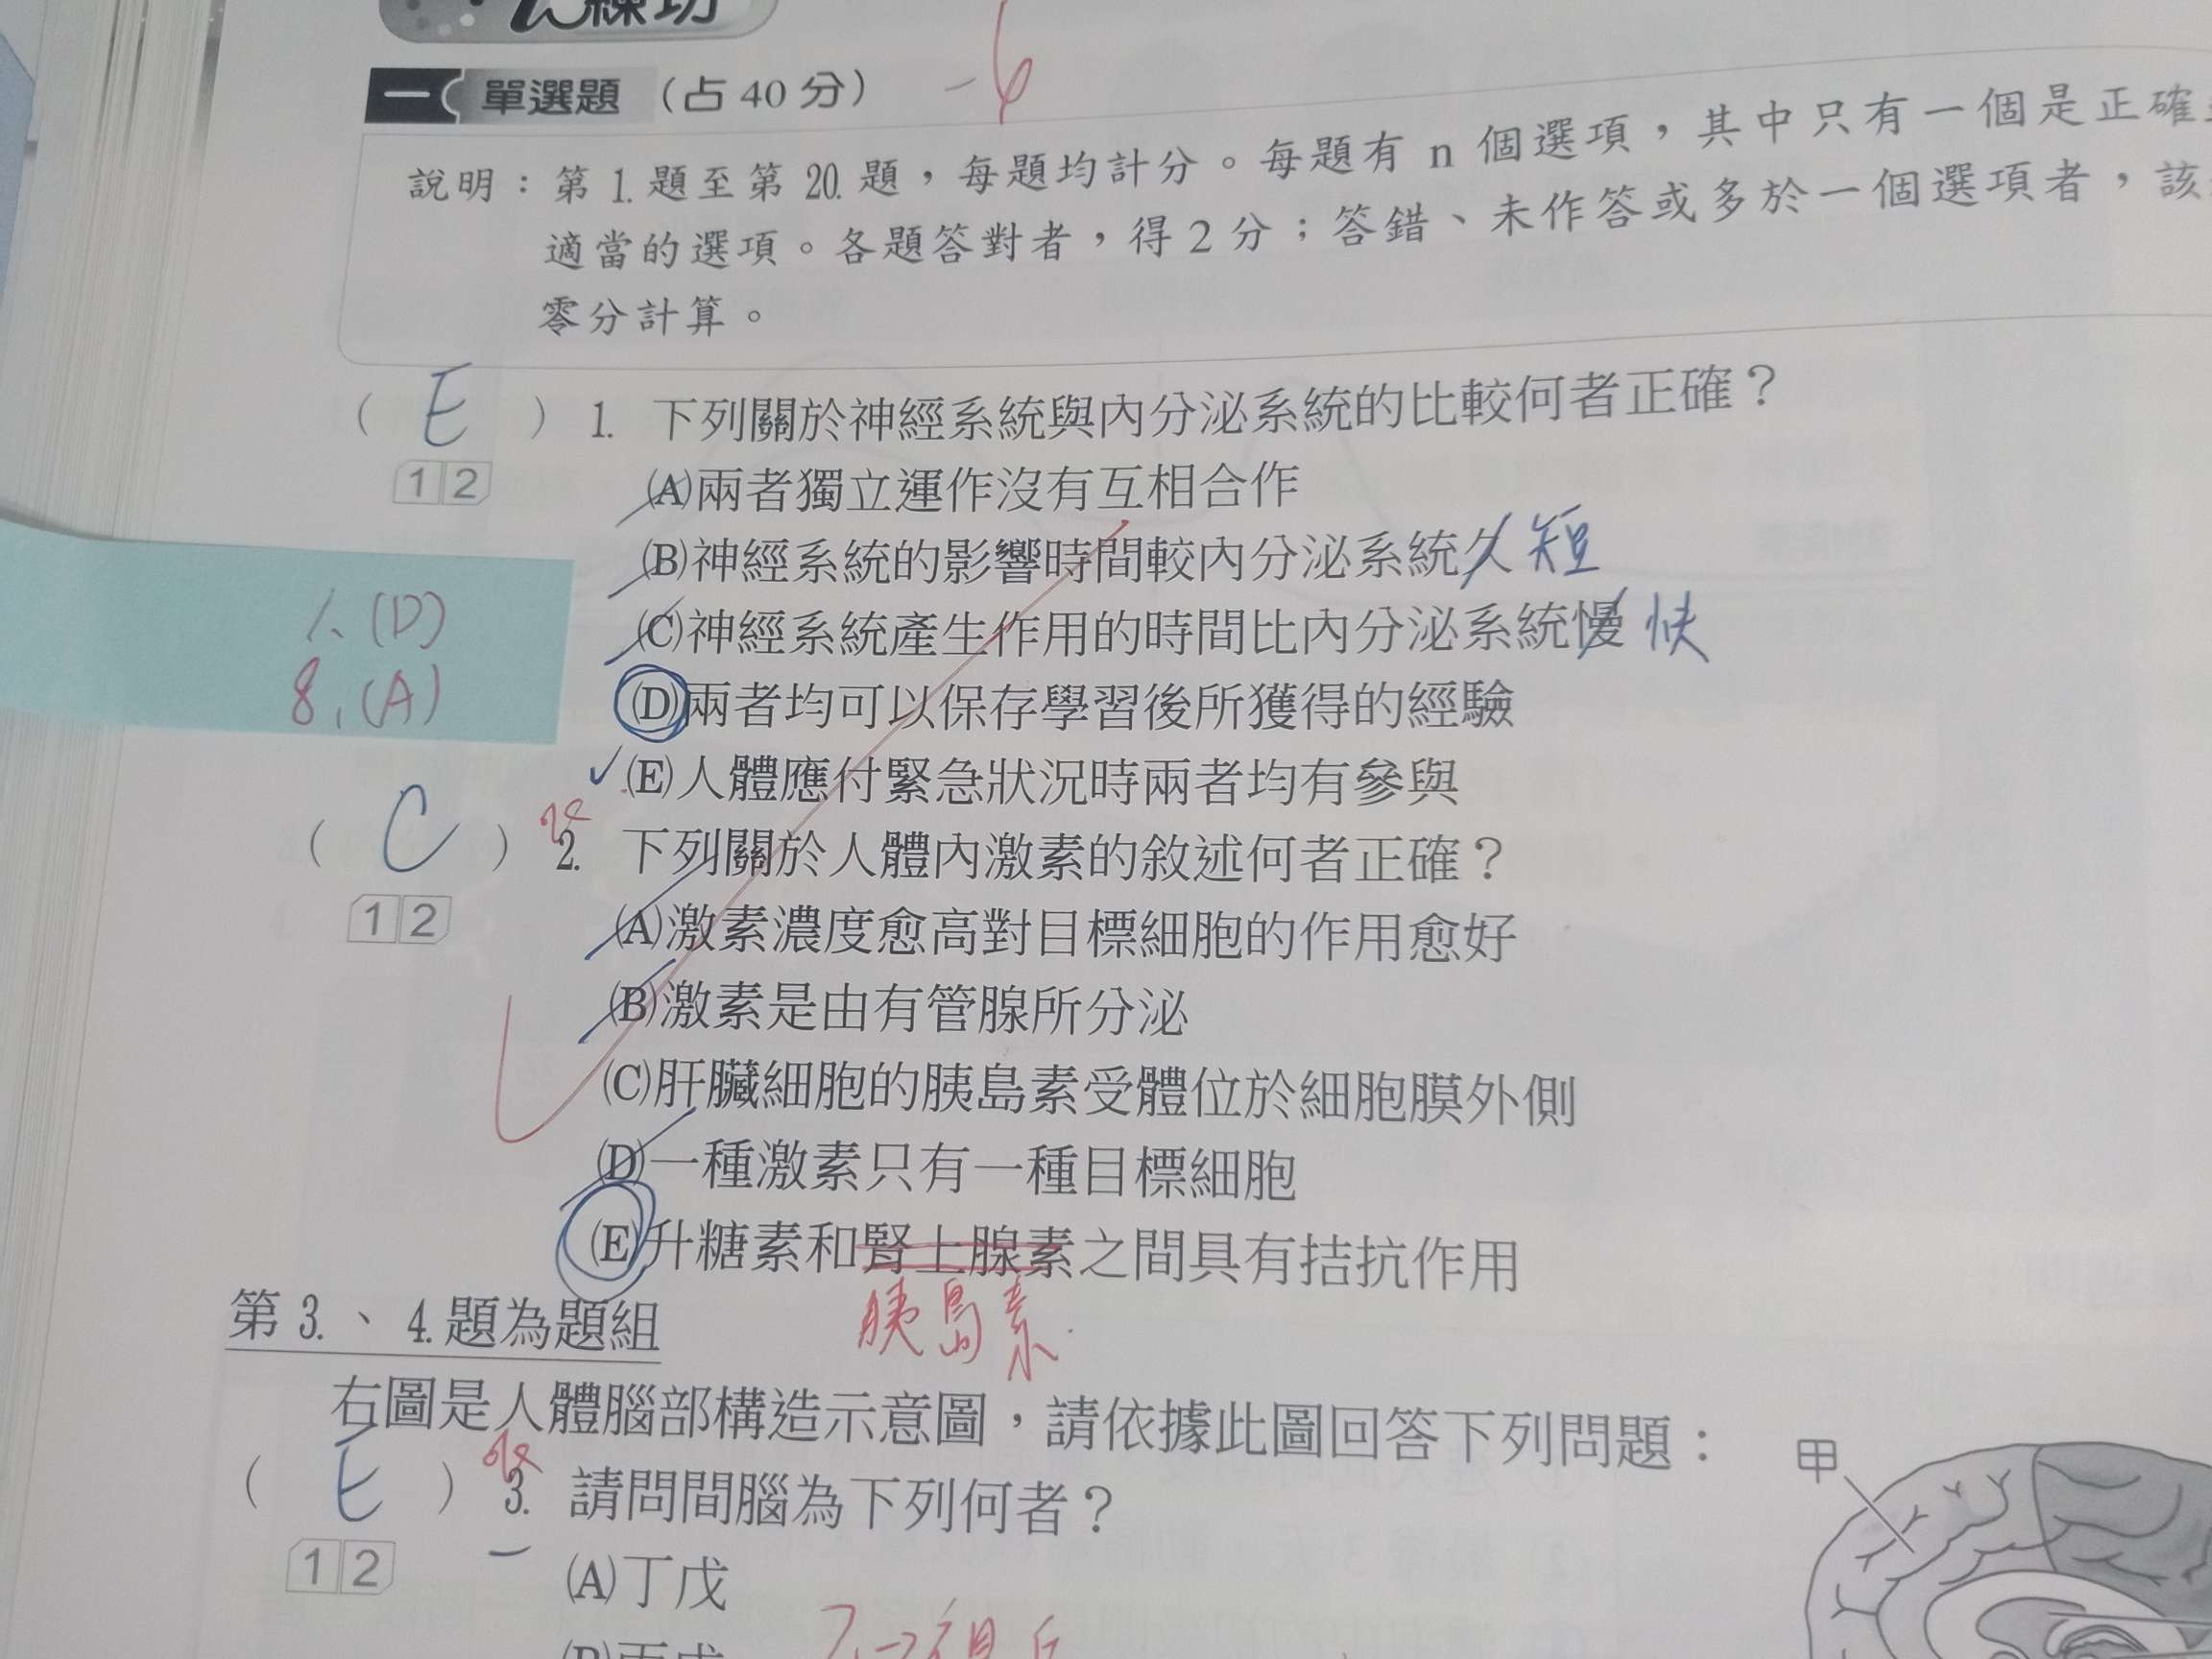 練功
一 單選題（占 40 分） -6
說明：第 1. 題至第 20. 題，每題均計分。每題有 n 個選項，其中只有一個是正確
適當的選項。各題答對者，得 2 分；答錯、未作答或多於一個選項者，該
零分計算。
（ E ）1. 下列關於神經系統與內分泌系統的比較何者正確？
1 2
(A)兩者獨立運作沒有互相合作
(B)神經系統的影響時間較內分泌系統久 短
(C)神經系統產生作用的時間比內分泌系統慢 快
(D)兩者均可以保存學習後所獲得的經驗
(E)人體應付緊急狀況時兩者均有參與
1、(D)
8、(A)
（ C ）2. 下列關於人體內激素的敘述何者正確？
1 2
(A)激素濃度愈高對目標細胞的作用愈好
(B)激素是由有管腺所分泌
(C)肝臟細胞的胰島素受體位於細胞膜外側
(D)一種激素只有一種目標細胞
(E)升糖素和腎上腺素之間具有拮抗作用
胰島素
第 3.、4. 題為題組
右圖是人體腦部構造示意圖，請依據此圖回答下列問題：
甲
（ E ）3. 請問間腦為下列何者？
1 2
(A)丁戊